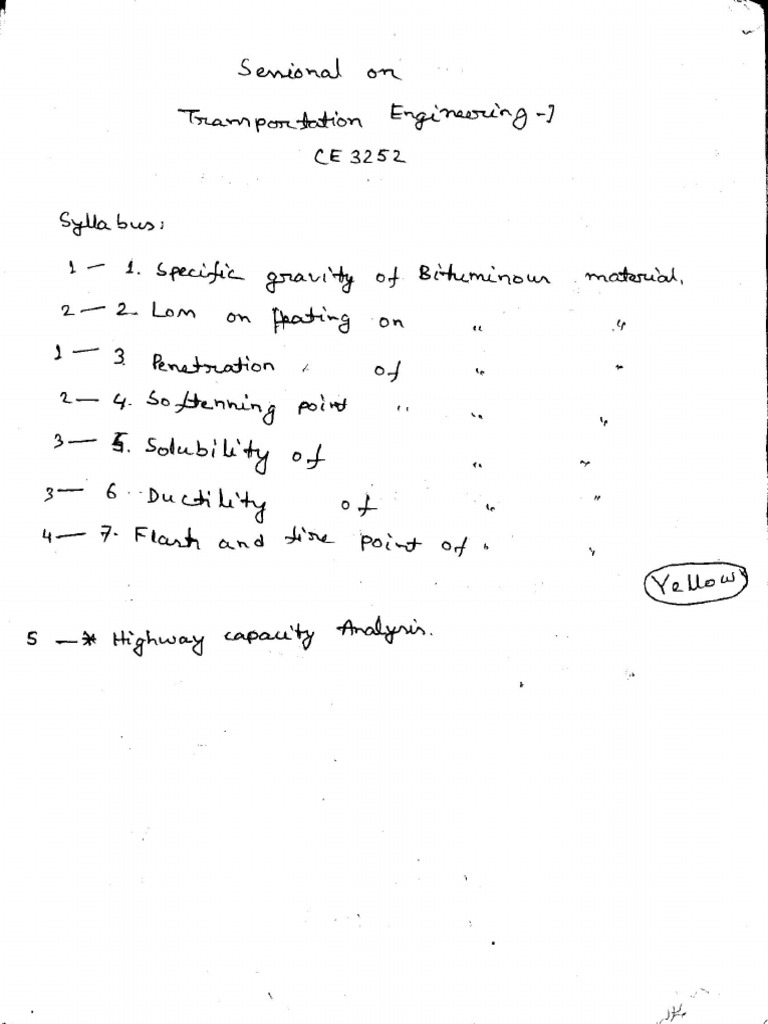 Sessional on
Transportation Engineering-I
CE 3252
Syllabus:
1 — 1. Specific gravity of Bituminous material.
2 — 2. Loss on Heating on " "
1 — 3. Penetration of " "
2 — 4. Softenning point " " "
3 — 5. Solubility of " "
3 — 6. Ductility of " "
4 — 7. Flash and fire point of " "
Yellow
5 — * Highway capacity Analysis.